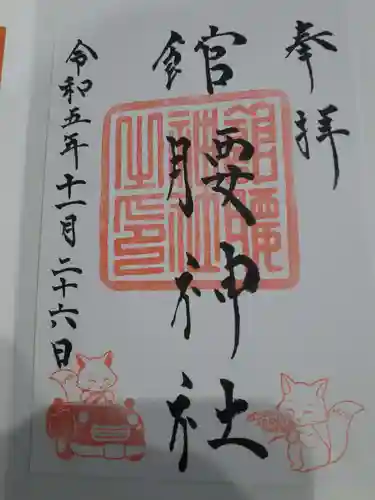 奉拝
館腰神社
館腰神社之印
令和五年十一月二十六日